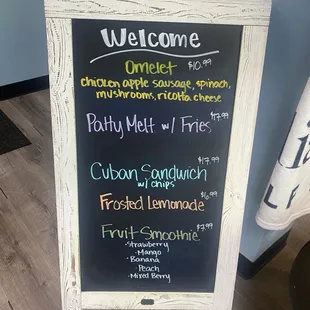 Welcome
Omelet $10.99
chicken apple sausage, spinach,
mushrooms, ricotta cheese
Patty Melt w/ Fries $17.99
Cuban Sandwich $17.99
w/ chips
Frosted Lemonade $6.99
Fruit Smoothie $7.99
· Strawberry
· Mango
· Banana
· Peach
· Mixed Berry